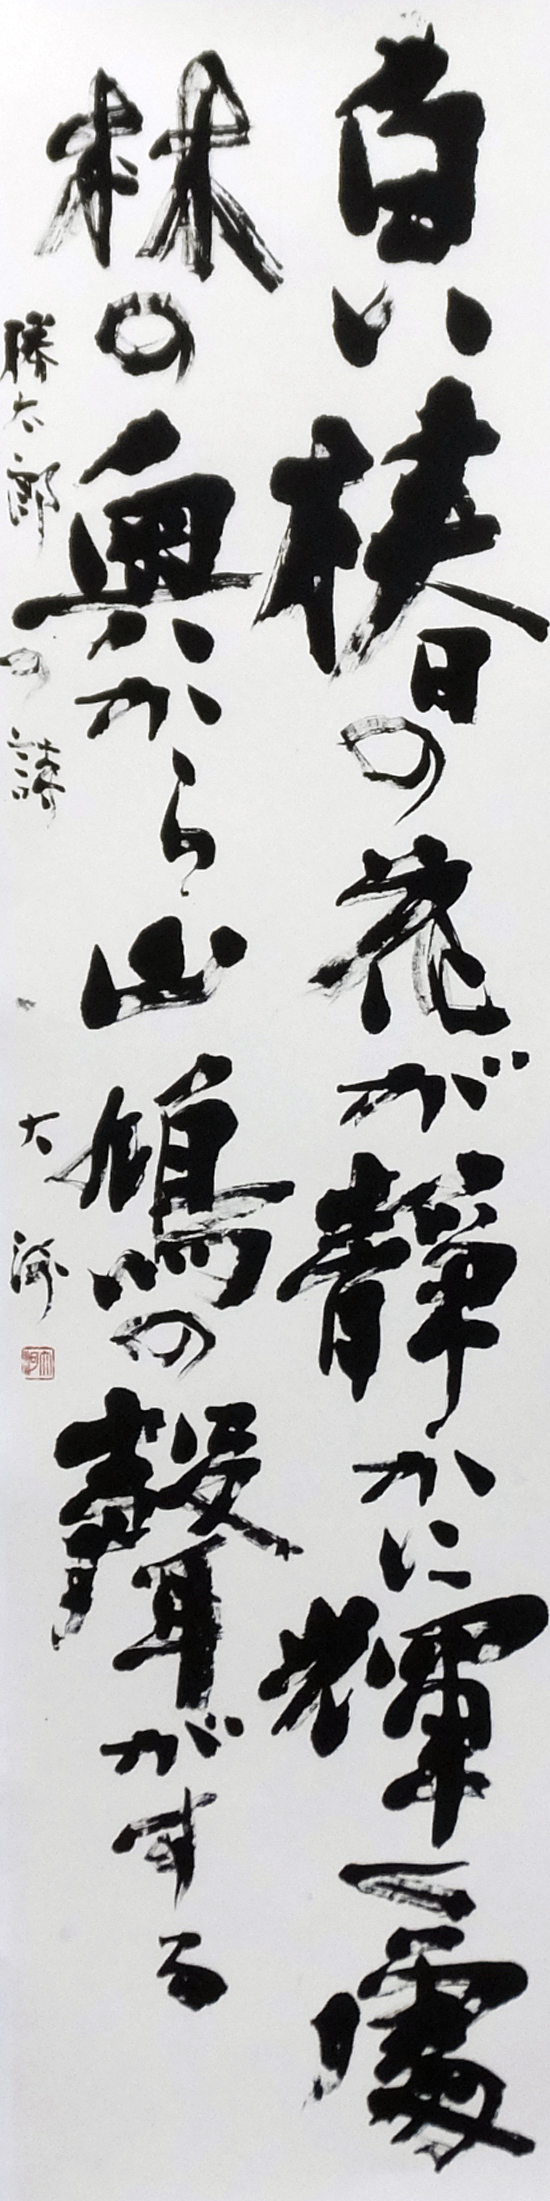 白い椿の花が静かに輝く處
林の奥から山鳩の聲がする
勝太郎の詩
大海